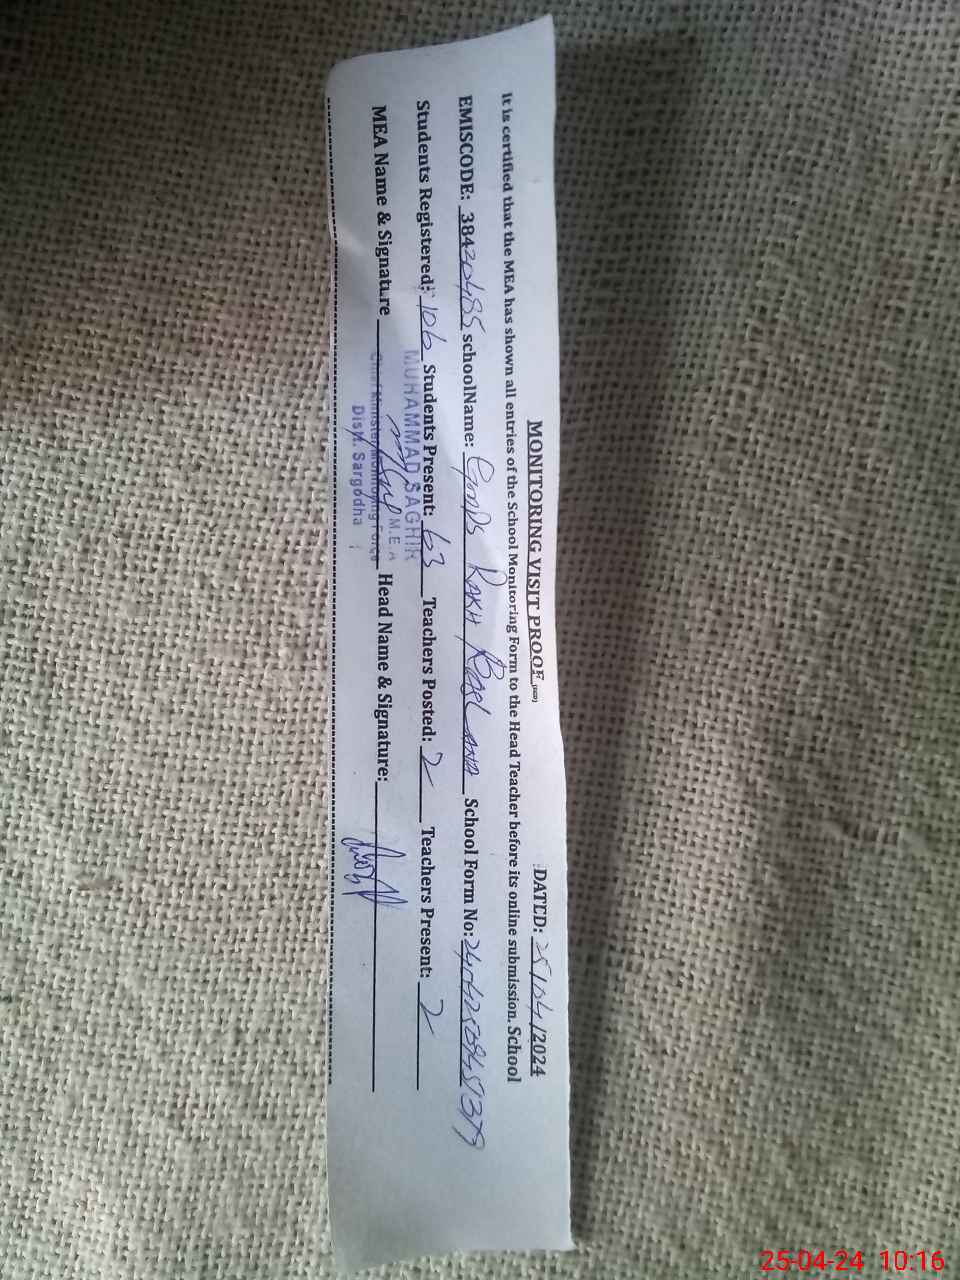 MONITORING VISIT PROOF DATED: 25/04/2024
It is certified that the MEA has shown all entries of the School Monitoring Form to the Head Teacher before its online submission. School
EMISCODE: 38420485 schoolName: GMPS RAKH School Form No:
Students Registered: 106 Students Present: 63 Teachers Posted: 2 Teachers Present: 2
MUHAMMAD SAGHIR
M.E.A
MEA Name & Signature Head Name & Signature:
Chief Minister Monitoring Force
Distt. Sargodha
25-04-24 10:16